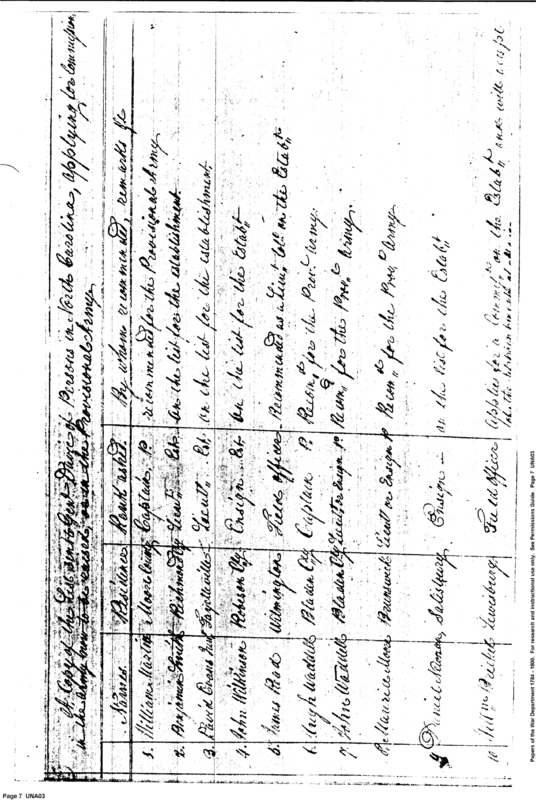 A Copy of the List sent to Genl Davie of Persons in North Carolina, applying for Commissions,
in the army now to be raised, or in the Provisional Army
Names Residence Rank asked By whom recommended, remarks &c
1. William Martin Moore County Captain P recommended for the Provisional Army
2. Benjamin Smith Richmond Cty Lieut. Est. On the list for the establishment
3. David Evans Junr Fayetteville Lieut. Est. On the list for the establishment.
4. John Wilkinson Robeson Cty Ensign Est On the list for the Establt,,
5. James Read Wilmington Field officer Recommended as a Lieut. Colo. on the Establt
6. Hugh Waddell Bladen Cty Captain P. Recomd,, for the Provl Army.
7. John Waddell Bladen Cty Lieut or Ensign P Recomd,, for the Provl Army.
8. Maurice Moore Brunswick Lieut or Ensign P Recomd,, for the Prov Army
9 Daniel Newnan Salisbury Ensign — on the list for the Establt,,
10 Lewisburg Field officer applies for a Commisn on the Establt,, and will accept
Page 7 UNA03
Papers of the War Department 1784 - 1800. For research and instructional use only. See Permissions Guide. Page 7 UNA03